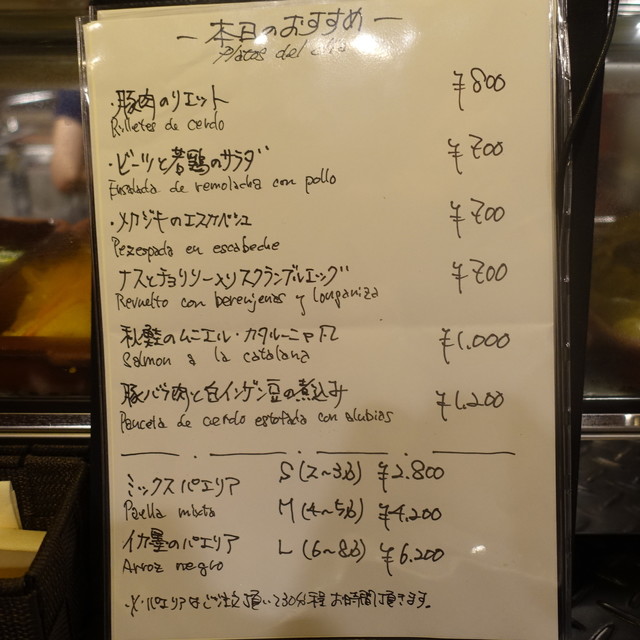 — 本日のおすすめ —
Platos del día
・豚肉のリエット ¥800
Rilletes de cerdo
・ビーツと若鶏のサラダ ¥700
Ensalada de remolacha con pollo
・メカジキのエスカベシュ ¥700
Pezespada en escabeche
ナスとチョリソー入りスクランブルエッグ ¥700
Revuelto con berenjenas y longaniza
秋鮭のムニエル・カタルーニャ風 ¥1,000
Salmon a la catalana
豚バラ肉と白インゲン豆の煮込み ¥1,200
Panceta de cerdo estofada con alubias
ミックスパエリア S (2〜3名) ¥2.800
Paella mixta M (4〜5名) ¥4,200
イカ墨のパエリア L (6〜8名) ¥6.200
Arroz negro
※パエリアはご注文頂いて30分程お時間頂きます。